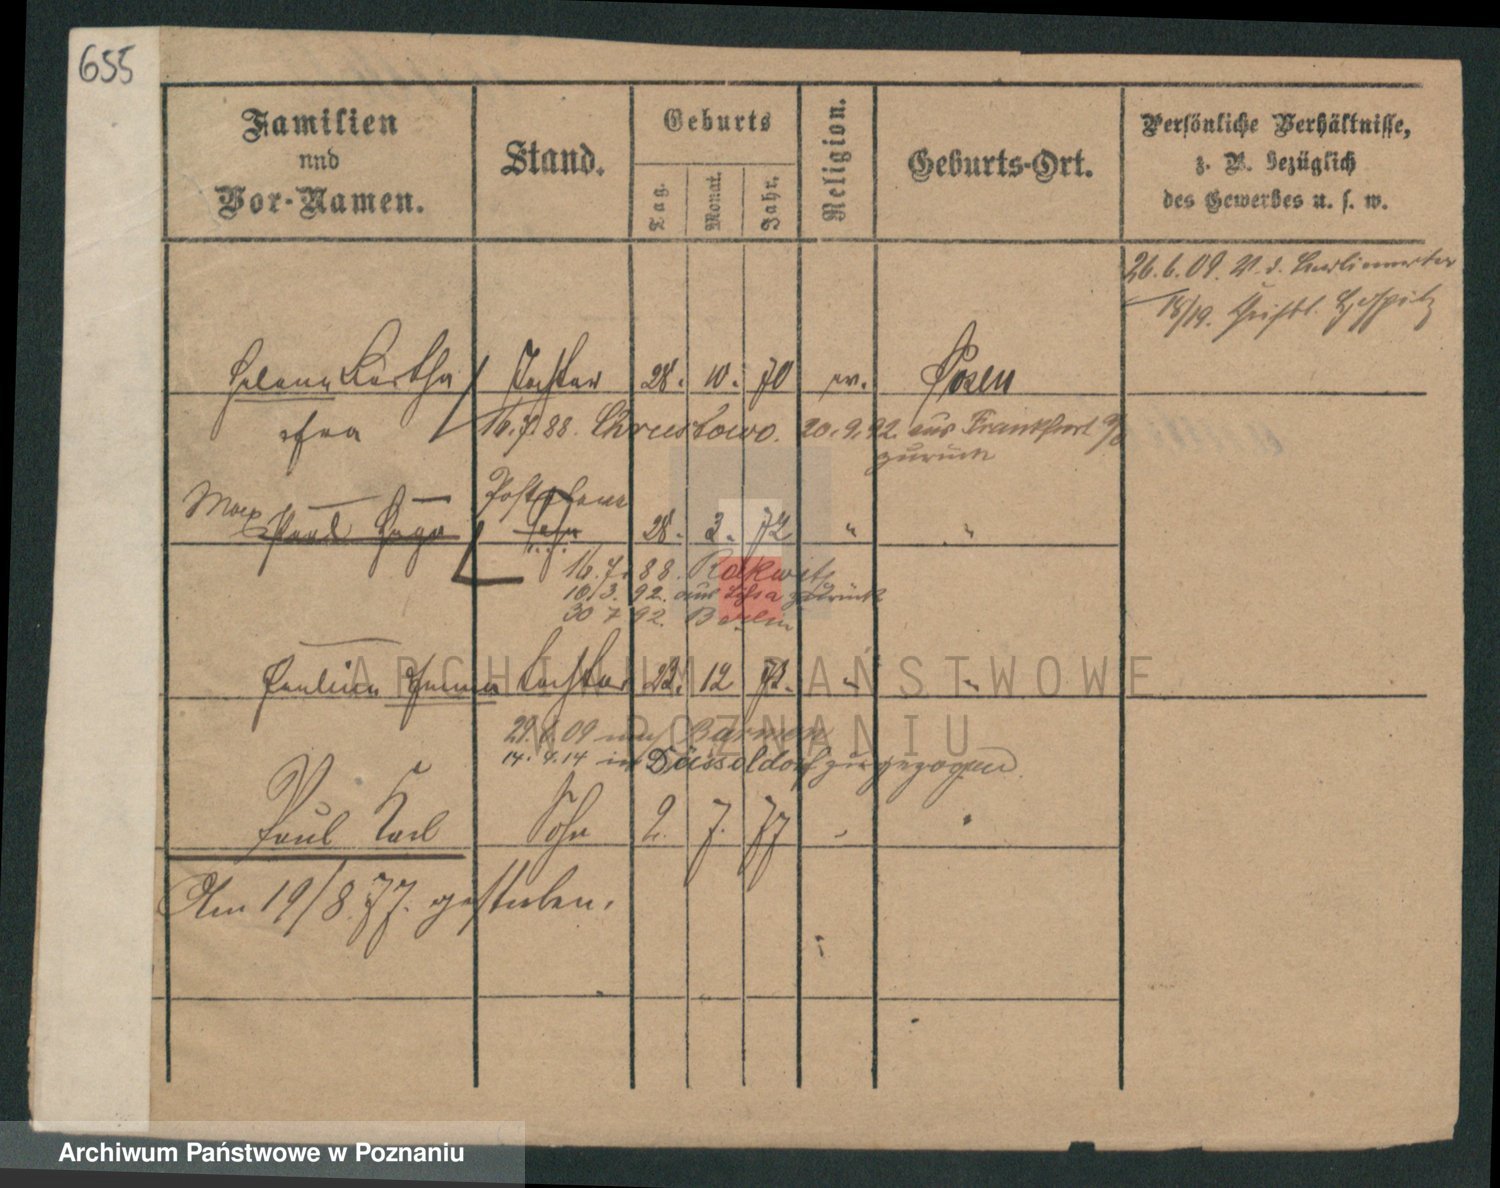 655
Familien
und
Vor-Namen.
Stand.
Geburts
Tag.
Monat.
Jahr.
Religion.
Geburts-Ort.
Persönliche Verhältnisse,
z. B. bezüglich
des Gewerbes u. s. w.
26. 6. 09. V. d.
18/19. Christl. Hospitz
Helene Bertha Tochter 28. 10. 70 ev. Posen
16. 7. 88. Chrustowo. 20. 9. 92. aus Frankfurt a/O
zurück
Max Paul Hugo Sohn 28. 3. 72 " "
16. 7. 88. Rakwitz
10/3. 92. aus Lissa zurück
30 7 92. Berlin
Pauline Emma Tochter 23. 12 73. " "
29. 6. 09 nach Barmen
14. 4. 14 in Düsseldorf zugezogen.
Paul Karl Sohn 2. 7. 77 " "
Am 19/8 77. gestorben.
ARCHIWUM PAŃSTWOWE
W POZNANIU
Archiwum Państwowe w Poznaniu